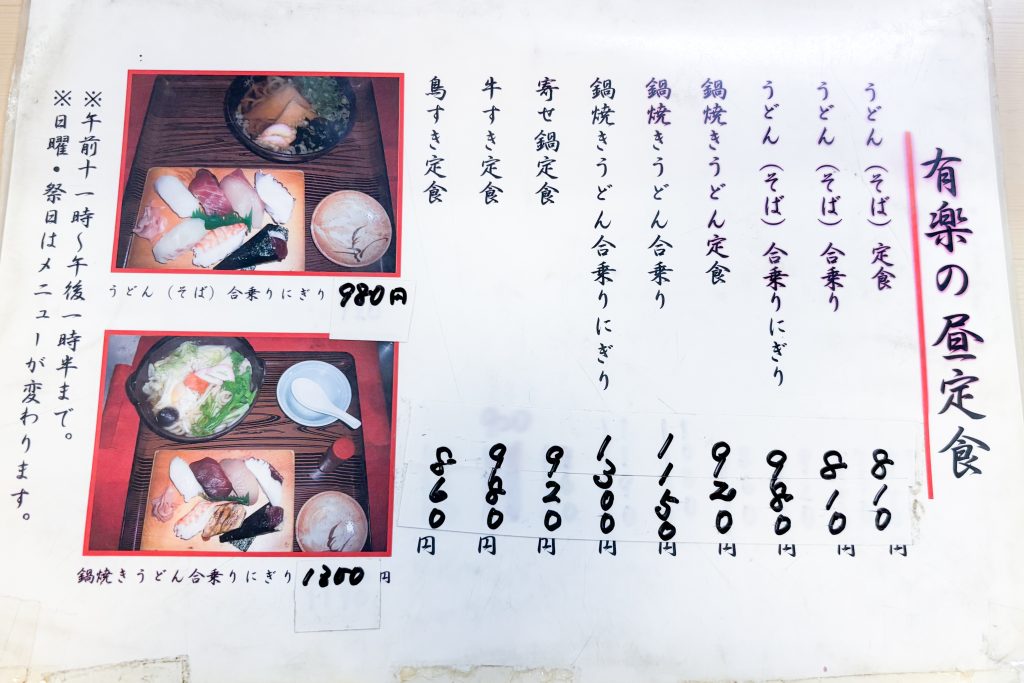 有楽の昼定食
うどん（そば）定食 810円
うどん（そば）合乗り 810円
うどん（そば）合乗りにぎり 980円
鍋焼きうどん定食 920円
鍋焼きうどん合乗り 1150円
鍋焼きうどん合乗りにぎり 1300円
寄せ鍋定食 920円
牛すき定食 980円
鳥すき定食 860円
うどん（そば）合乗りにぎり 980円
鍋焼きうどん合乗りにぎり 1300円
※午前十一時～午後一時半まで。
※日曜・祭日はメニューが変わります。